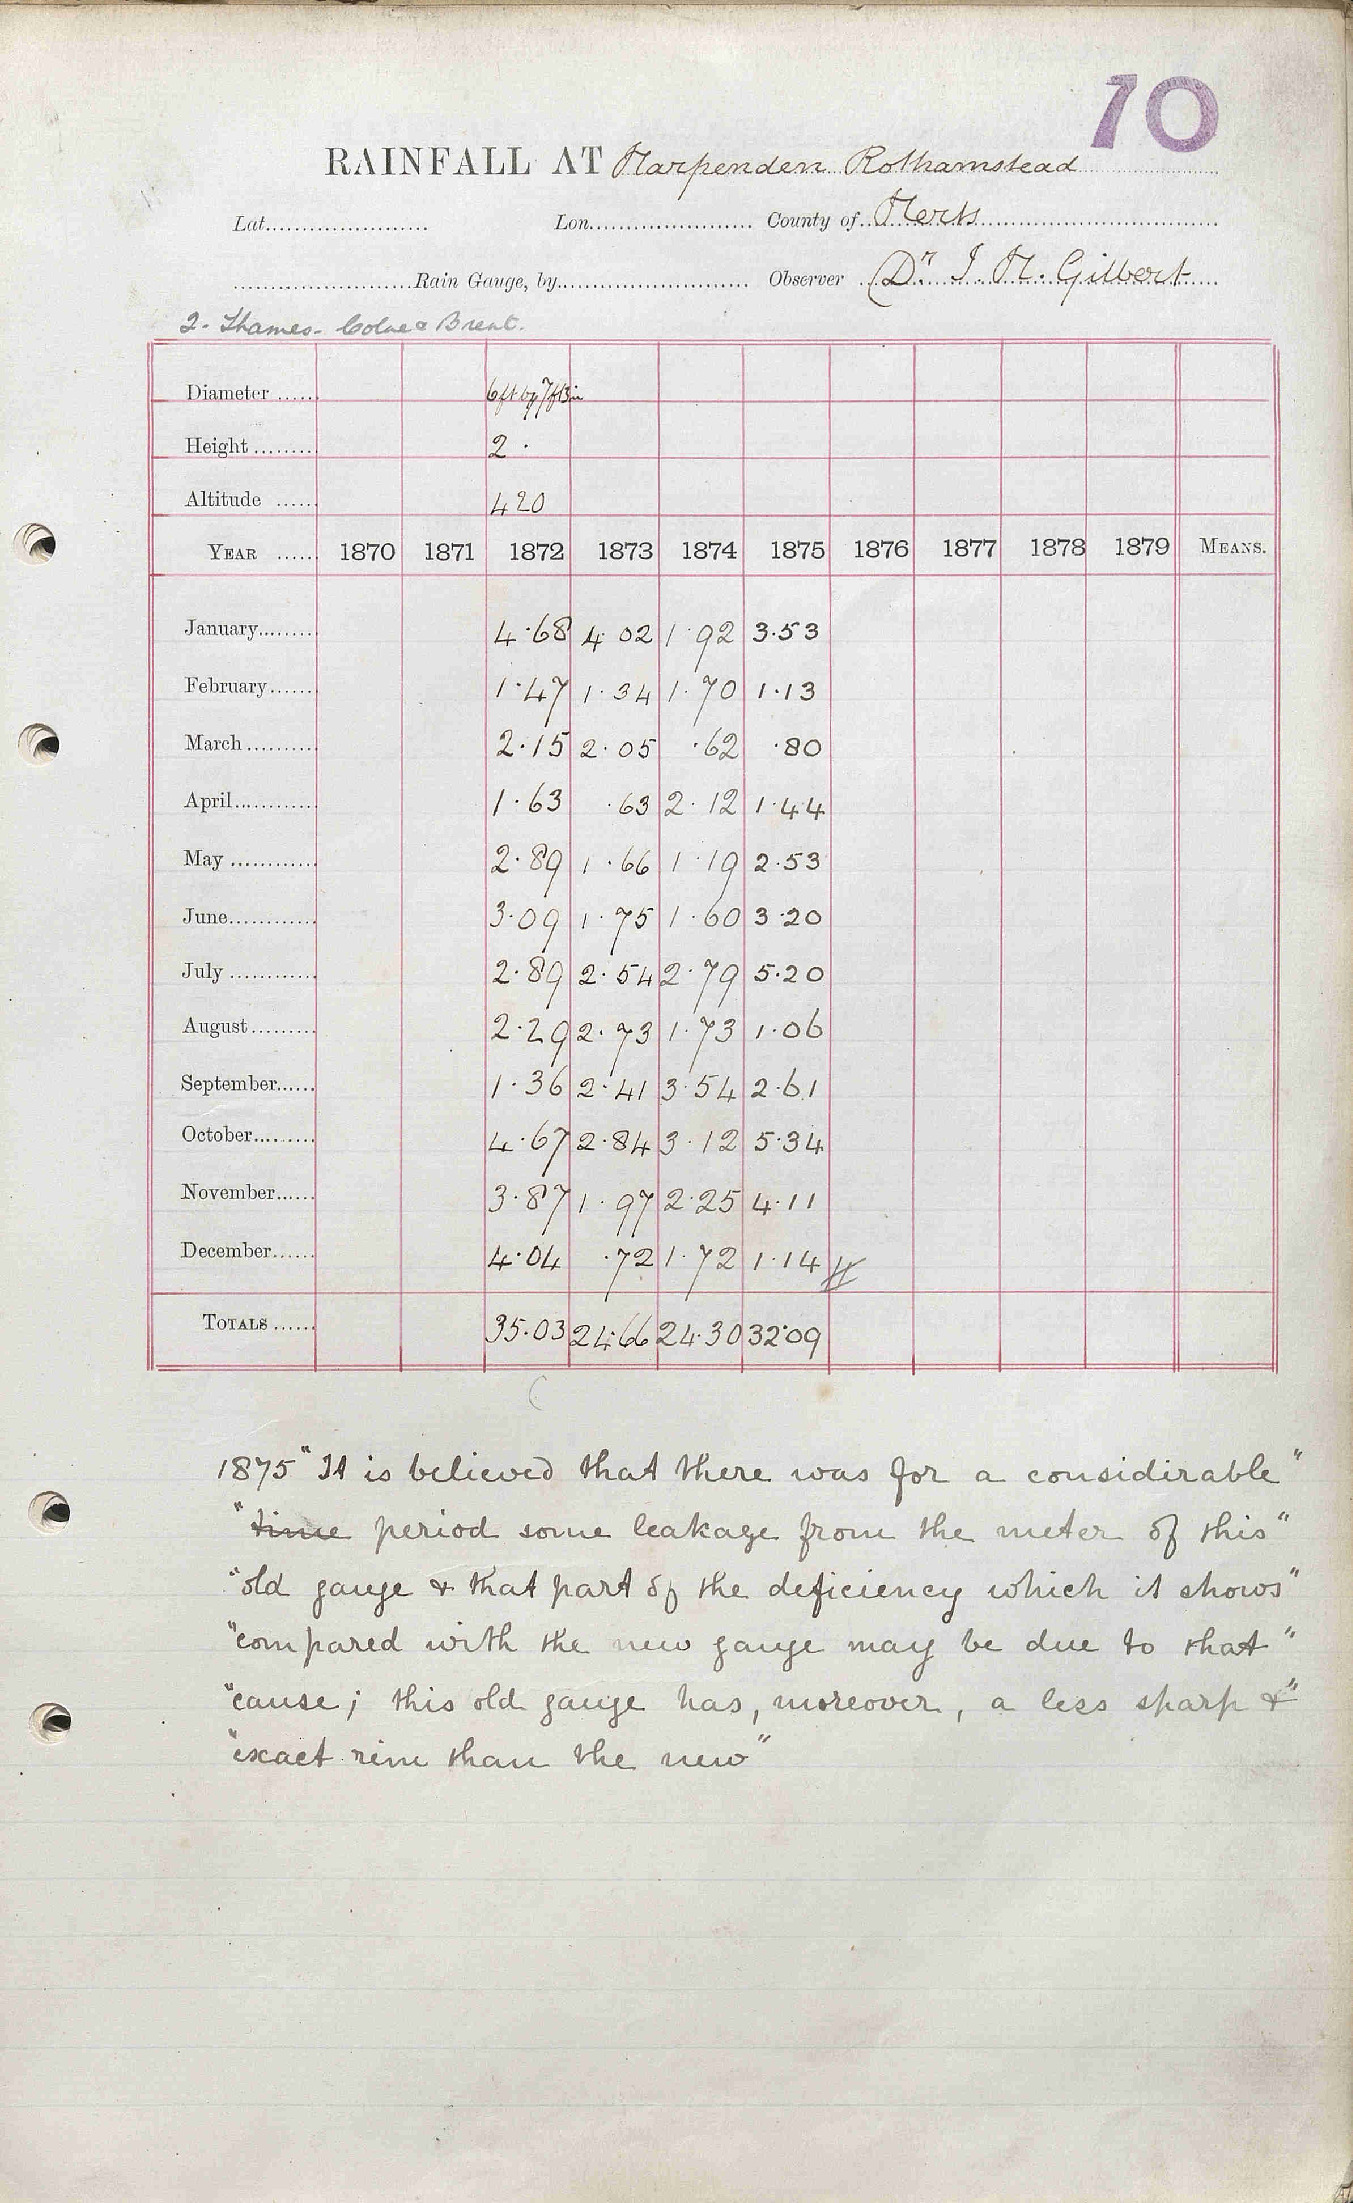 10
RAINFALL AT Harpenden Rothamstead
Lat...................... Lon...................... County of Herts
Rain Gauge, by...................... Observer Dr. J. H. Gilbert
2. Thames - Colne & Brent.
Diameter ...... 6ft by 7ft 3in
Height ......... 2 .
Altitude ...... 420
YEAR ...... 1870 1871 1872 1873 1874 1875 1876 1877 1878 1879 MEANS.
January ......... 4.68 4.02 1.92 3.53
February ...... 1.47 1.34 1.70 1.13
March .......... 2.15 2.05 .62 .80
April............ 1.63 .63 2.12 1.44
May ............ 2.89 1.66 1.19 2.53
June............ 3.09 1.75 1.60 3.20
July ............ 2.89 2.54 2.79 5.20
August......... 2.29 2.73 1.73 1.06
September...... 1.36 2.41 3.54 2.61
October......... 4.67 2.84 3.12 5.34
November...... 3.87 1.97 2.25 4.11
December...... 4.04 .72 1.72 1.14
TOTALS ...... 35.03 24.66 24.30 32.09
1875 "It is believed that there was for a considirable"
"time period some leakage from the meter of this"
"old gauge & that part of the deficiency which it shows"
"compared with the new gauge may be due to that"
"cause; this old gauge has, moreover, a less sharp &"
"exact rim than the new"